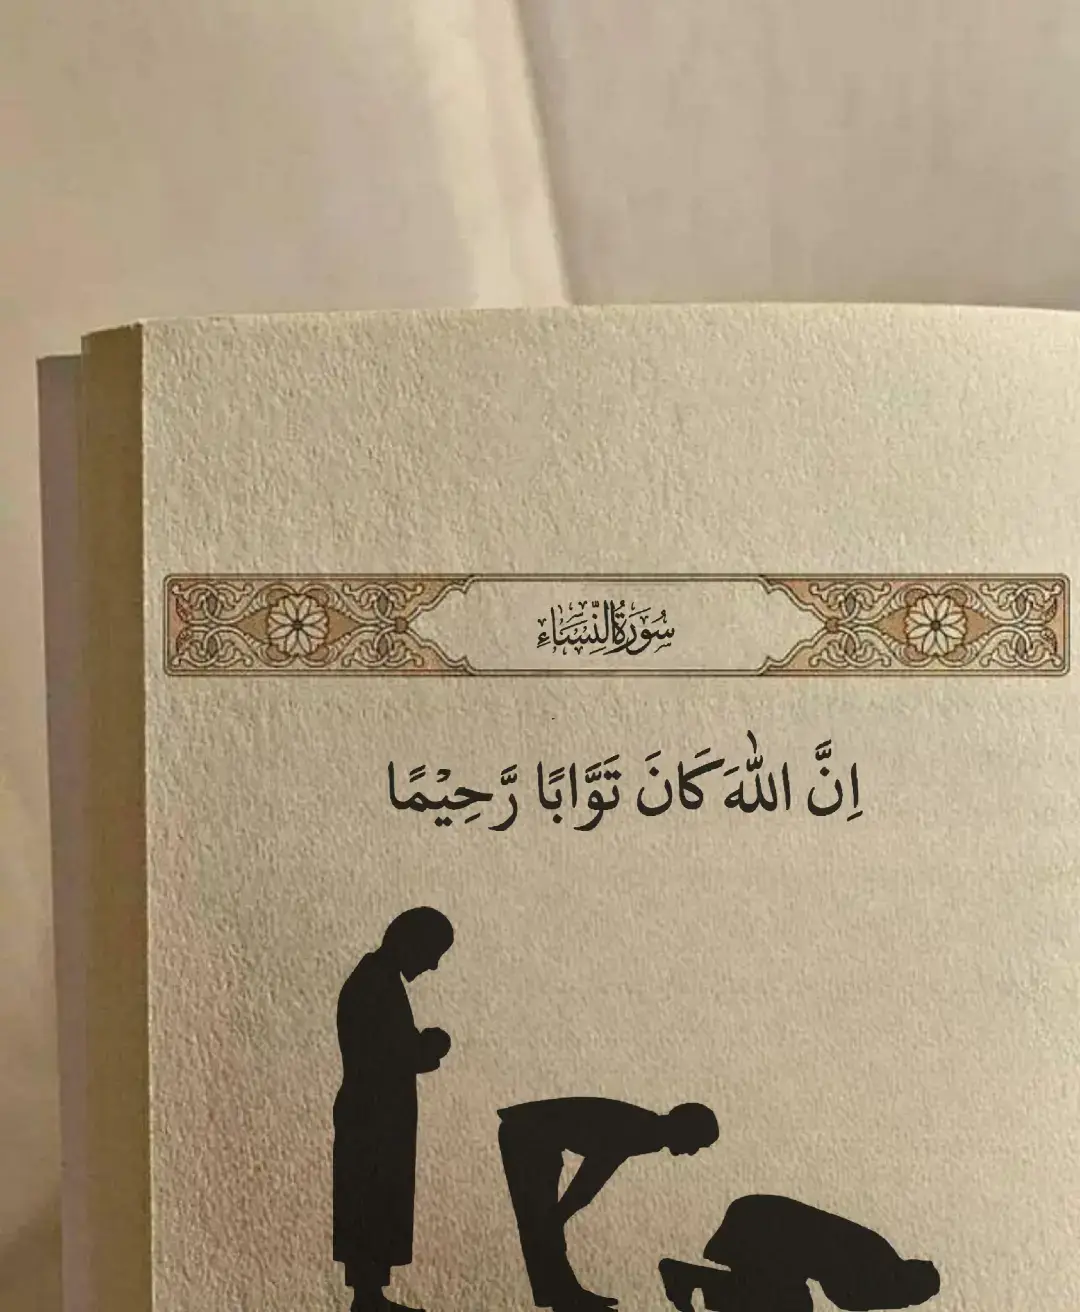 سُورَةُ النِّسَاءِ
اِنَّ اللّٰهَ كَانَ تَوَّابًا رَّحِيْمًا